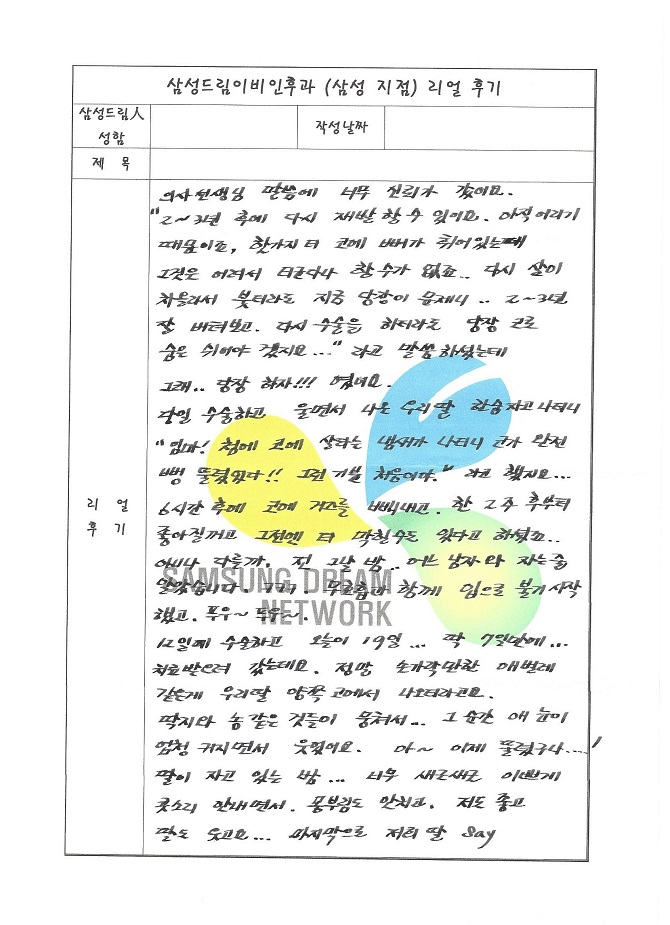 삼성드림이비인후과 (삼성 지점) 리얼 후기
삼성드림人
성함
작성날짜
제 목
리 얼
후 기
의사선생님 말씀에 너무 신뢰가 갔어요.
"2~3년 후에 다시 재발 할 수 있어요. 아직 어리기
때문이죠, 한가지 더 코에 뼈가 휘어있는데
그것은 어려서 더군다나 할수가 없죠.. 다시 살이
차올라서 붓더라도 지금 당장이 문제니.. 2~3년
잘 버텨보고. 다시 수술을 하더라도 당장 코로
숨은 쉬어야 겠지요..." 라고 말씀하셨는데
그래.. 당장 하자!!! 였어요.
당일 수술하고 울면서 나온 우리딸 한숨자고 나더니
"엄마! 첨에 코에 살타는 냄새가 나더니 코가 완전
뻥 뚫렸었다!! 그런 기분 처음이야." 라고 했지요...
6시간 후에 코에 거즈를 빼내고. 한 2주 후부터
좋아질꺼고 그전엔 더 막힐수도 있다고 하셨죠..
아니나 다를까, 전 그날 밤.. 어느 남자와 자는줄
알았습니다. 코골이. 무호흡과 함께 입으로 불기 시작
했고. 푸우~ 푸우~.
12일에 수술하고 오늘이 19일... 딱 7일만에...
치료받으러 갔는데요. 정말 손가락만한 애벌레
같은게 우리딸 양쪽 코에서 나오더라고요.
딱지와 농 같은 것들이 뭉쳐서... 그 순간 애 눈이
엄청 커지면서 웃었어요. 아~ 이제 뚫렸구나....!
딸이 자고 있는 밤... 너무 새근새근 이쁘게
콧소리 안내면서. 몸부림도 안치고. 저도 좋고
딸도 웃고요... 마지막으로 저희 딸 say
SAMSUNG DREAM
NETWORK